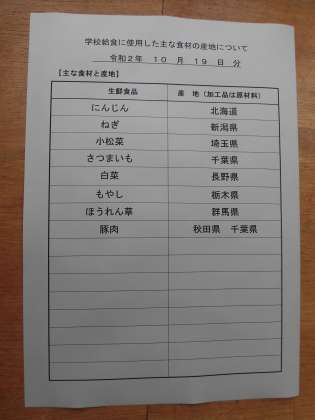 学校給食に使用した主な食材の産地について
令和2年 10 月 19 日 分
【主な食材と産地】
生鮮食品 産 地（加工品は原材料）
にんじん 北海道
ねぎ 新潟県
小松菜 埼玉県
さつまいも 千葉県
白菜 長野県
もやし 栃木県
ほうれん草 群馬県
豚肉 秋田県 千葉県